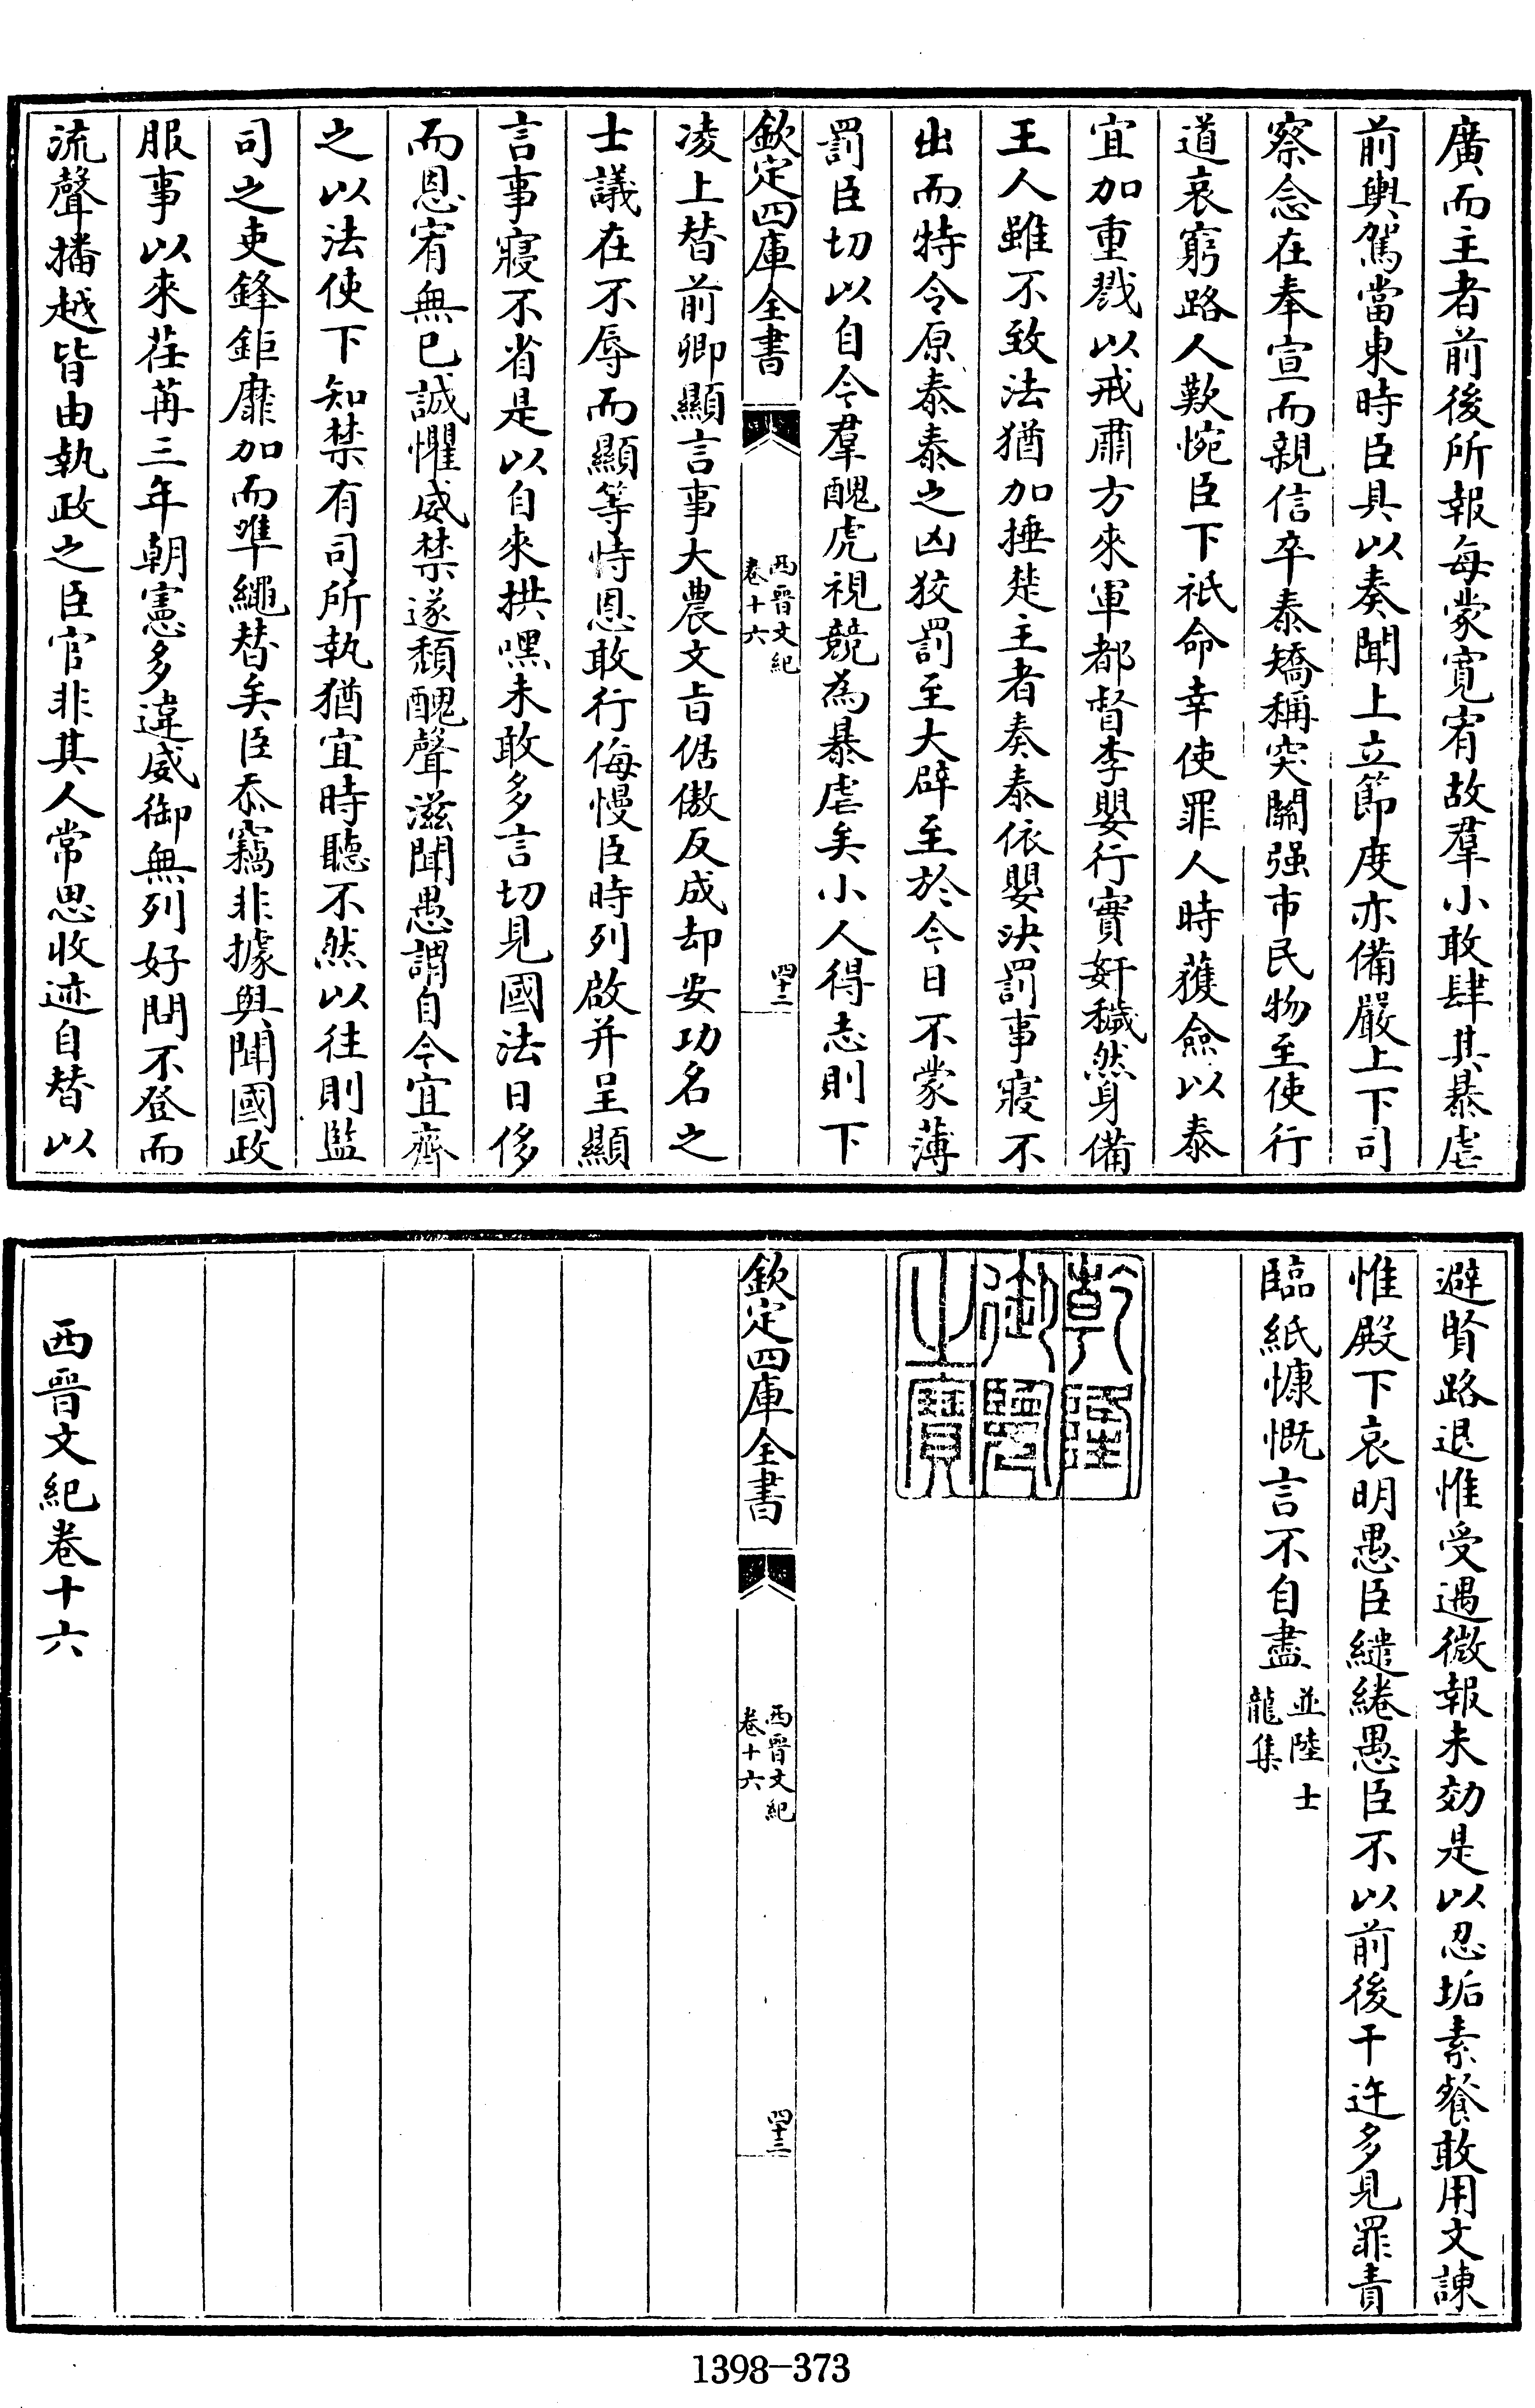 廣而主者前後所報每蒙寛宥故羣小敢肆其暴虐
前輿駕當東時臣具以奏聞上立節度亦備嚴上下司
察念在奉宣而親信卒泰矯稱突關强市民物至使行
道哀窮路人歎惋臣下祇命幸使罪人時獲僉以泰
宜加重戮以戒肅方來軍都督李嬰行實奸穢然身備
王人雖不致法猶加捶楚主者奏泰依嬰決罰事寢不
出而特令原泰泰之凶狡罰至大辟至於今日不蒙薄
罰臣切以自今羣醜虎視競為暴虐矣小人得志則下
欽定四庫全書
西晉文紀
卷十六
四十二
凌上替前卿顯言事大農文旨倨傲反成却安功名之
士議在不辱而顯等恃恩敢行侮慢臣時列啟并呈顯
言事寢不省是以自來拱嘿未敢多言切見國法日侈
而恩宥無已誠懼威禁遂頽醜聲滋聞愚謂自今宜齊
之以法使下知禁有司所執猶宜時聽不然以往則監
司之吏鋒鉅靡加而準繩替矣臣忝竊非據與聞國政
服事以來荏苒三年朝憲多違威御無列好問不登而
流聲播越皆由執政之臣官非其人常思收迹自替以
避賢路退惟受遇微報未効是以忍垢素餐敢用文諫
惟殿下哀明愚臣繾綣愚臣不以前後干迕多見罪責
臨紙慷慨言不自盡
並陸士
龍集
乾隆
御覽
之寶
欽定四庫全書
西晉文紀
卷十六
四十三
西晉文紀卷十六
1398-373